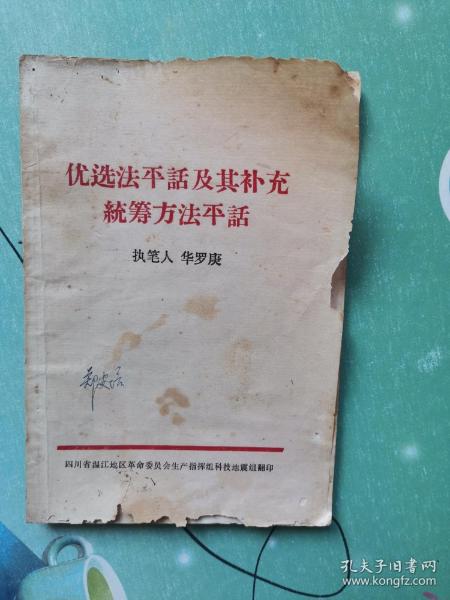 优选法平話及其补充
統筹方法平話
执笔人 华罗庚
四川省温江地区革命委员会生产指挥组科技地震组翻印
孔夫子旧书网
www.kongfz.com